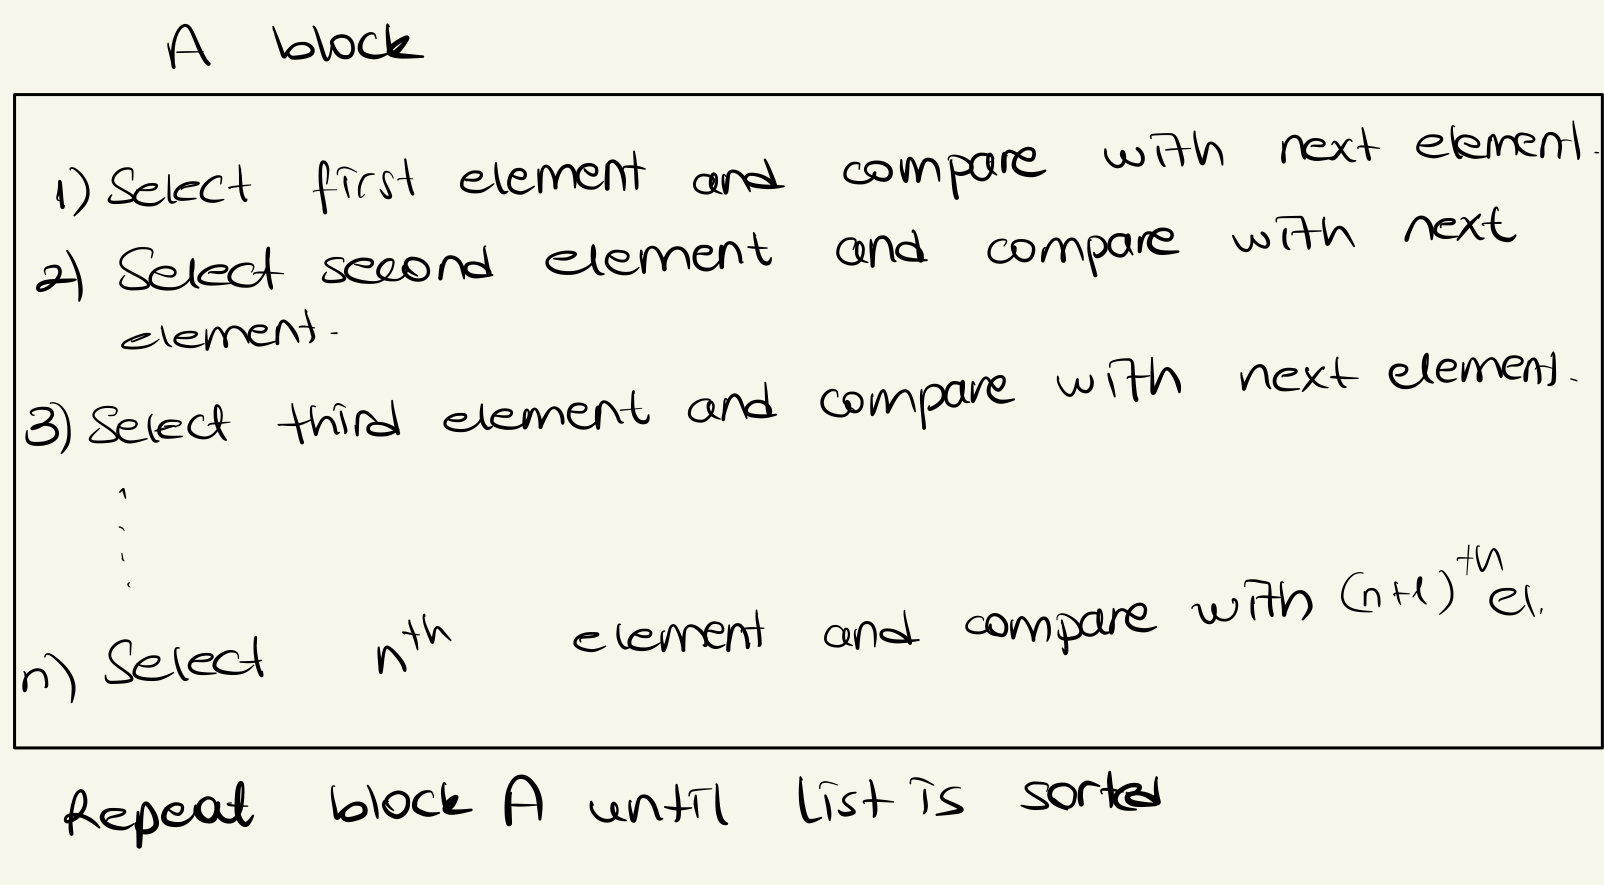 A block
1) Select first element and compare with next element.
2) Select second element and compare with next
element.
3) Select third element and compare with next element.
n) Select nth element and compare with (n+1)th el.
Repeat block A until list is sorted